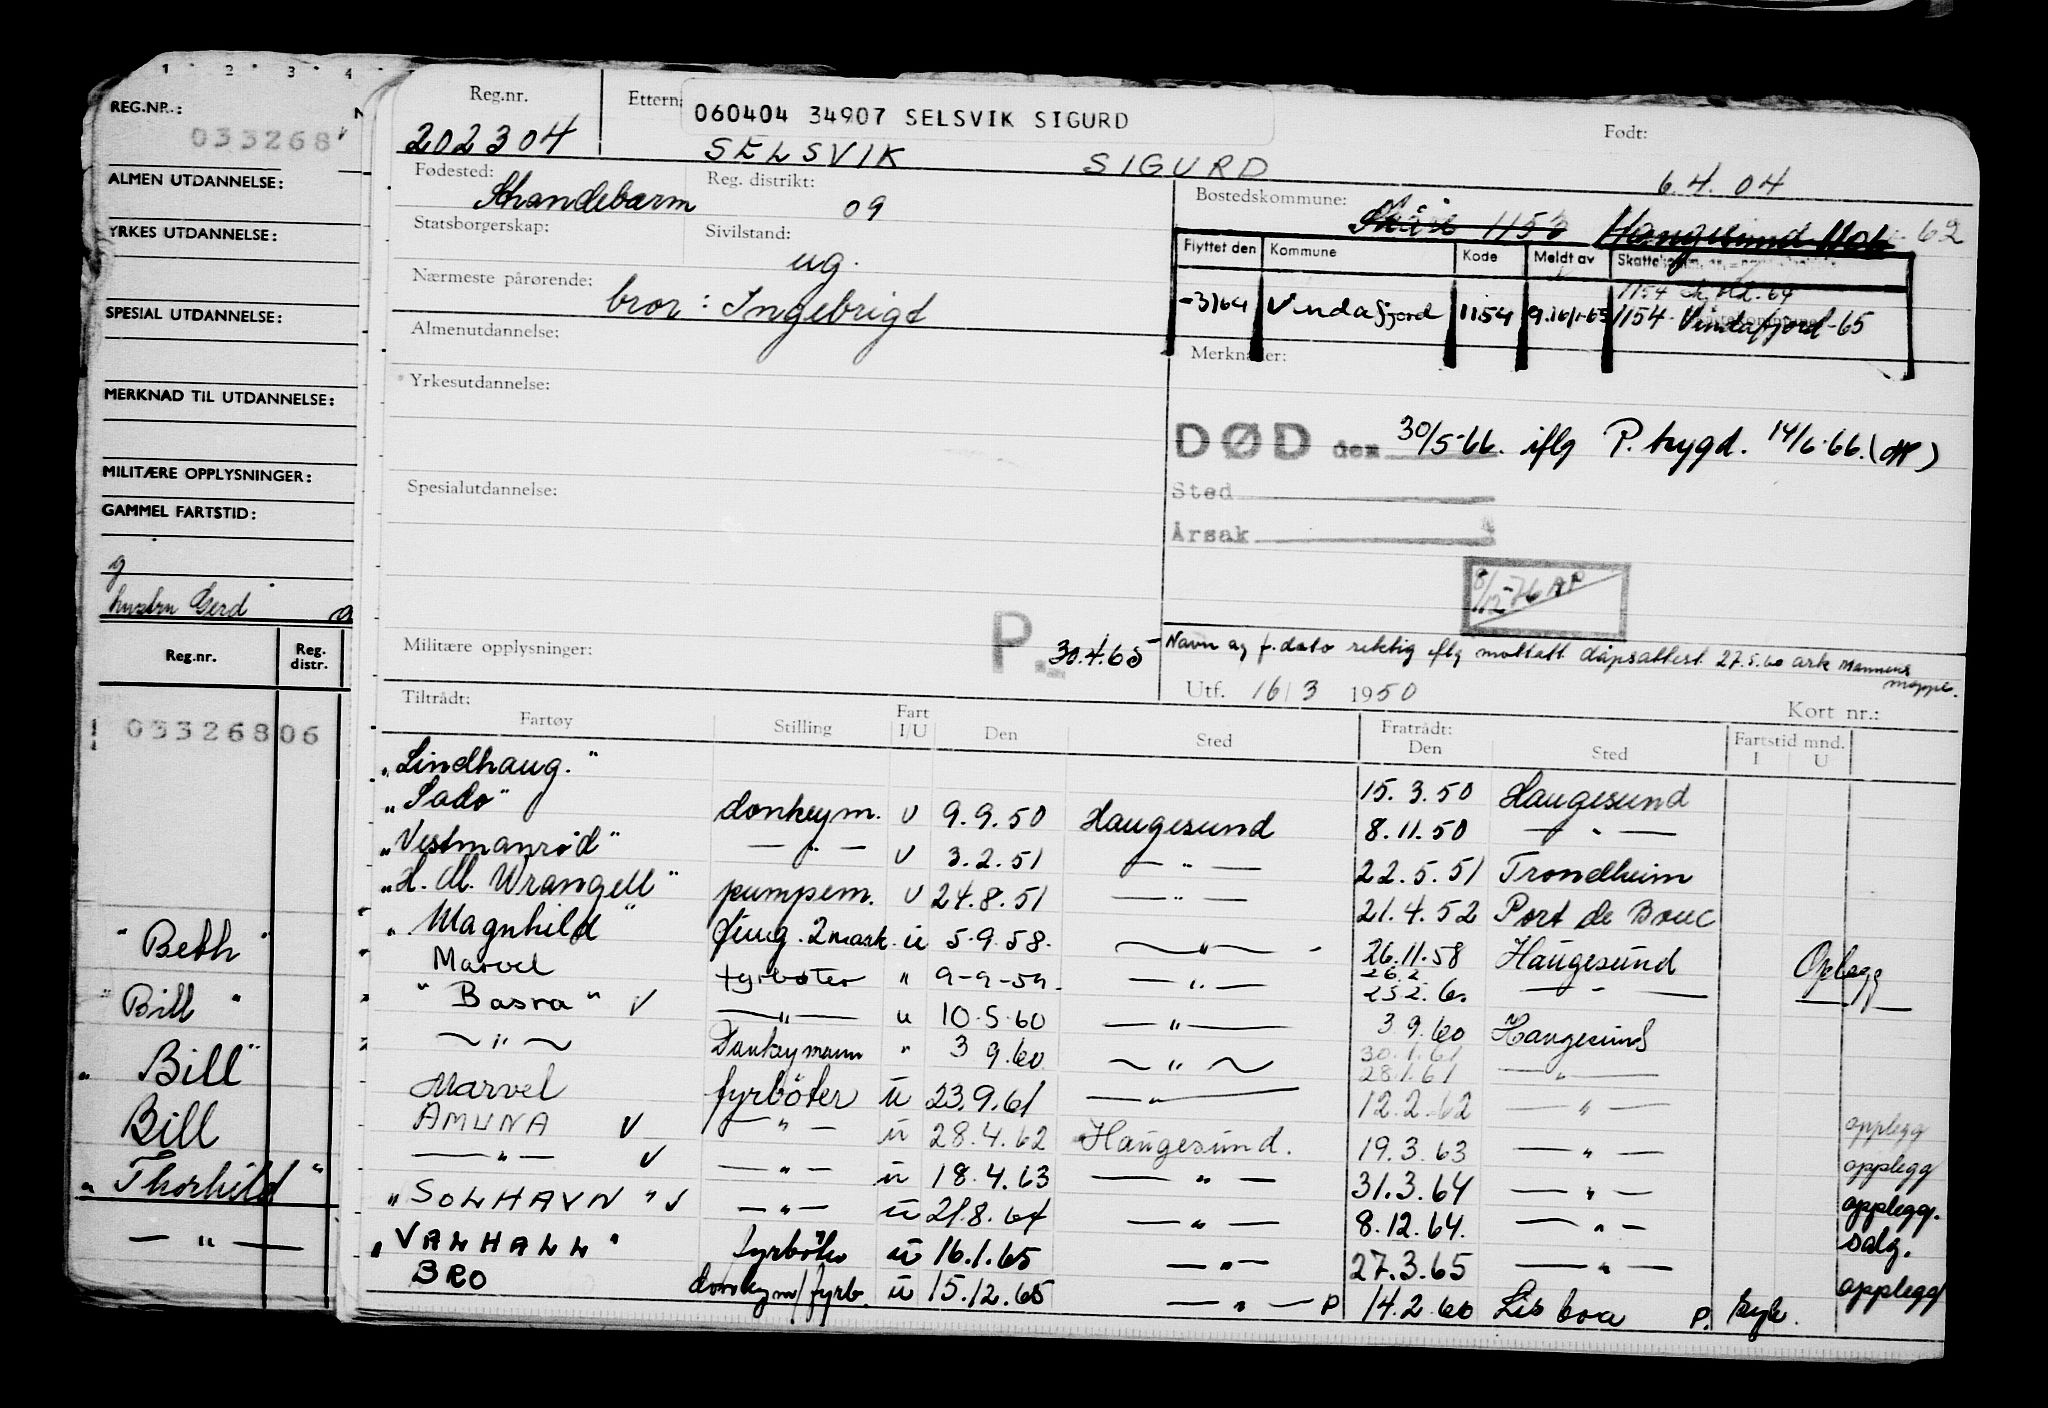 1 2 3 4
REG.NR.: N
033268
ALMEN UTDANNELSE:
YRKES UTDANNELSE:
SPESIAL UTDANNELSE:
MERKNAD TIL UTDANNELSE:
MILITÆRE OPPLYSNINGER:
GAMMEL FARTSTID:
g
hustru Gerd
Reg.nr. Reg. distr.
033268 06
" Beth "
" Bill "
" Bill "
Bill
" Thorhild "
— " —
Reg.nr. Ettern.
060404 34907 SELSVIK SIGURD
Født:
202304 SELSVIK SIGURD 6.4.04
Fødested: Reg. distrikt: Bostedskommune:
Strandebarm 09 Skåre 1153 Haugesund 62
Statsborgerskap: Sivilstand:
ug.
Flyttet den Kommune Kode Meldt av
Nærmeste pårørende:
bror: Ingebrigt
-3/64 Vindafjord 1154 1154 Vindafjord -65
Almenutdannelse: Merknader:
Yrkesutdannelse:
DØD den 30/5-66. iflg P. trygd. 14/6-66.
Sted
Årsak
Spesialutdannelse:
8/12-76
Militære opplysninger: P. 30.4.65
Navn og f.dato riktig iflg mottatt dåpsattest 27.5.60 ark mannens mappe.
Utf. 16/3 1950 Kort nr.:
Tiltrådt: Fratrådt:
Fartøy Stilling Fart I/U Den Sted Den Sted Fartstid mnd. I U
"Lindhaug." 15.3.50 Haugesund
"Sado" donkeym. U 9.9.50 Haugesund 8.11.50 — " —
"Vestmanrød" — " — U 3.2.51 — " — 22.5.51 Trondheim
"H. M. Wrangell" pumpem. U 24.8.51 — " — 21.4.52 Port de Bouc
"Magnhild" fung. 2 mask. u 5.9.58. — " — 26.11.58 Haugesund Opplegg
Marvel fyrbøter " 9-9-59. — " — 26.2 25.2.60 — " —
"Basra" — " — u 10.5.60 — " — 3 9.60 Haugesund
— " — Donkeymann " 3 9.60 — " — 30.1.61 28.1.61 — " —
Marvel fyrböter u 23.9.61 — " — 12.2.62 — " — opplegg
AMUNA — " — u 28.4.62 Haugesund. 19.3.63 — " — opplegg
— " — — " — u 18.4.63 — " — 31.3.64 — " — opplegg.
"SOLHAVN" — " — u 21.8.64 — " — 8.12.64. — " — salg.
"VALHALL" fyrböter u 16.1.65 — " — 27.3.65 — " — opplegg
BRO donkeym/fyrb. u 15.12.65 — " — P 14.2.66 Lisboa P. syk.